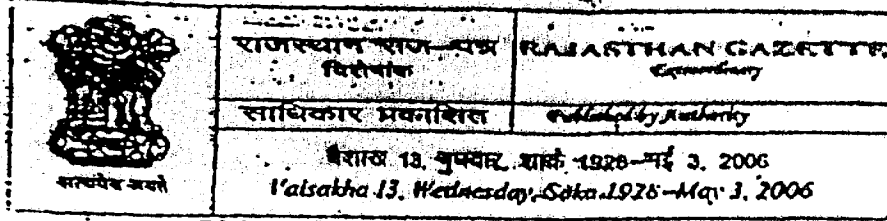 राजस्थान राज-पत्र
विशेषांक
RAJASTHAN GAZETTE
Extraordinary
साधिकार प्रकाशित
Published by Authority
वैशाख 13, बुधवार, शाके 1928-मई 3, 2006
Vaisakha 13, Wednesday, Saka 1928-May 3, 2006
सत्यमेव जयते